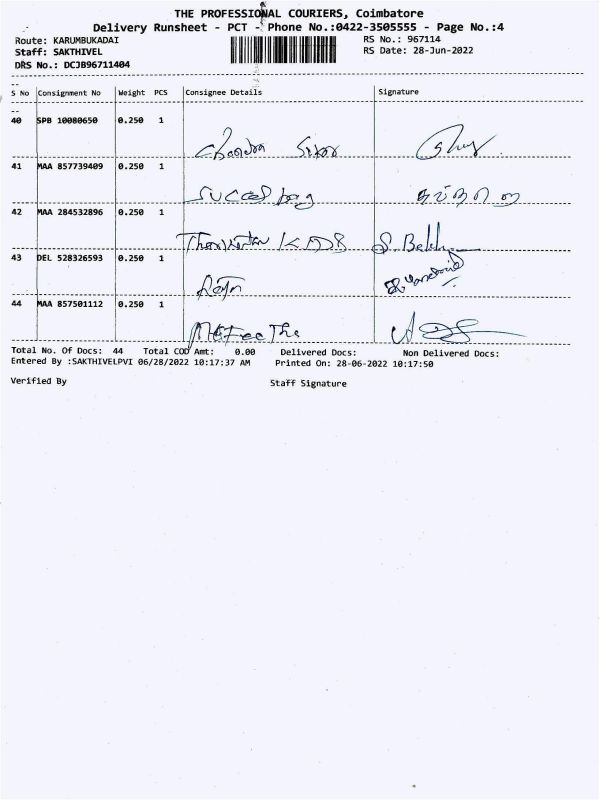 THE PROFESSIONAL COURIERS, Coimbatore
Delivery Runsheet - PCT - Phone No.:0422-3505555 - Page No.:4
Route: KARUMBUKADAI RS No.: 967114
Staff: SAKTHIVEL RS Date: 28-Jun-2022
DRS No.: DCJB96711404
S No Consignment No Weight PCS Consignee Details Signature
40 SPB 10080650 0.250 1
Chandra
41 MAA 857739409 0.250 1
42 MAA 284532896 0.250 1
43 DEL 528326593 0.250 1
44 MAA 857501112 0.250 1
Total No. Of Docs: 44 Total COD Amt: 0.00 Delivered Docs: Non Delivered Docs:
Entered By :SAKTHIVELPVI 06/28/2022 10:17:37 AM Printed On: 28-06-2022 10:17:50
Verified By Staff Signature